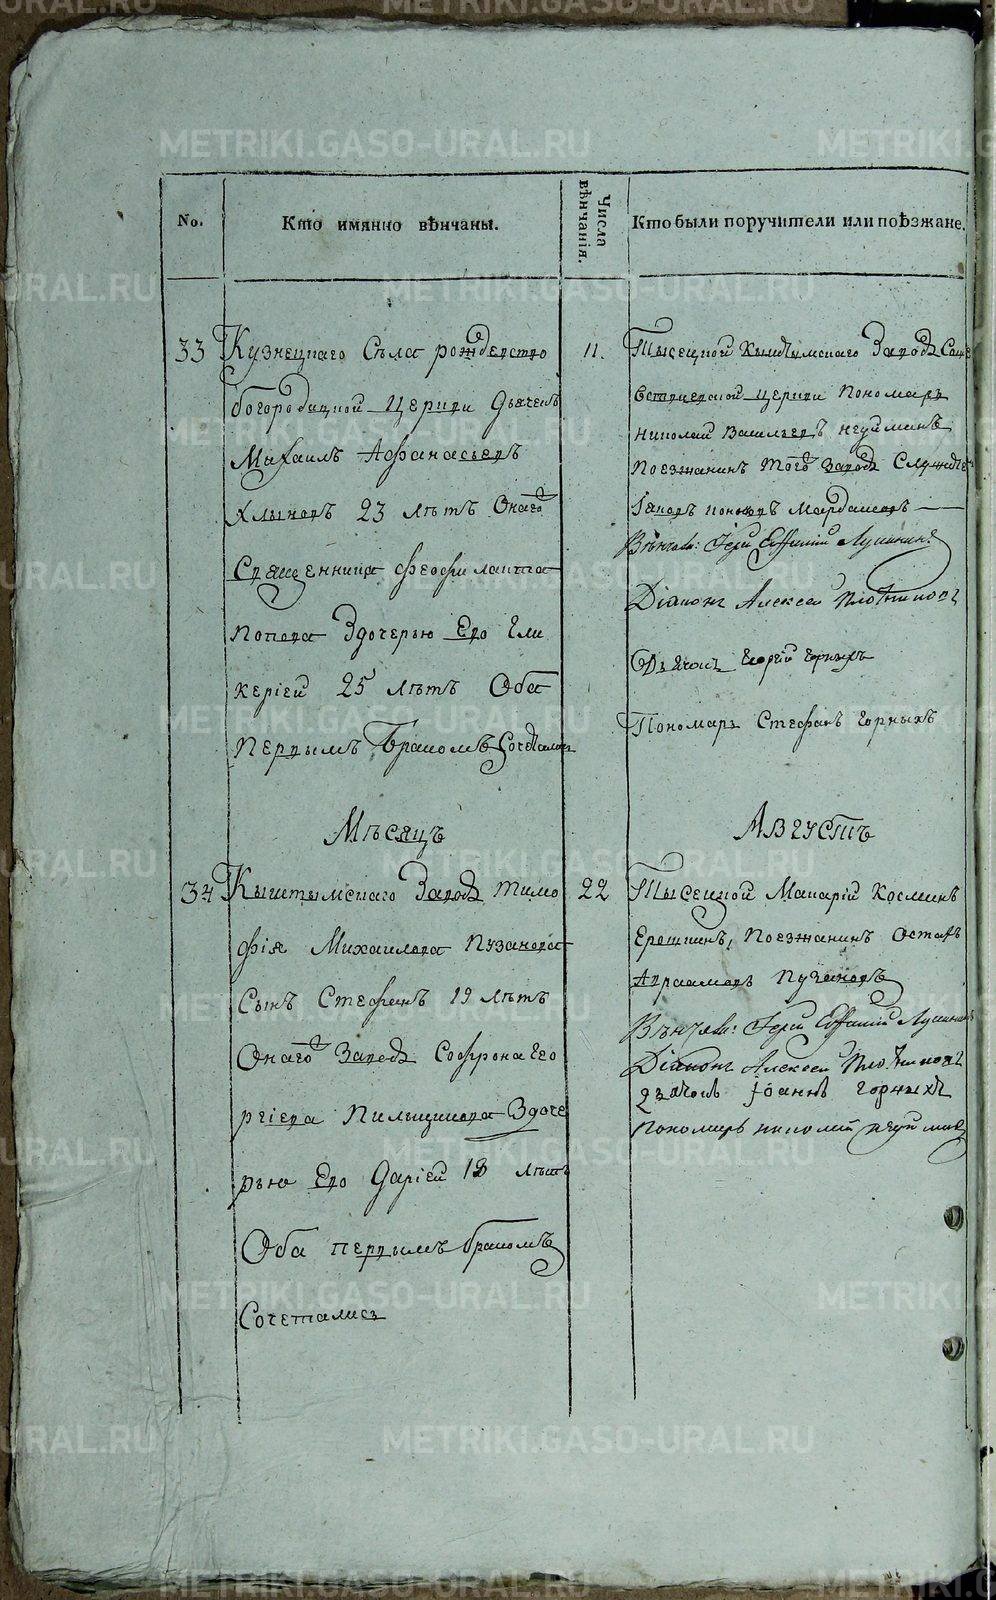 No.
Кто имянно вѣнчаны.
Числа вѣнчанія.
Кто были поручители или поѣзжане.
33
Кузнецкаго Села рождество
богородицкой Церкви Дьячекъ
Михаилъ Афанасьевъ
Клыковъ 23 лѣтъ Онаго
Священника Феофилакта
Попова Здочерью Его Гли
керіей 25 лѣтъ Оба
первымъ Бракомъ Сочетались
11.
Тысецкой Кыштымскаго Завода
церкви Пономарь
николай Васильевъ неуйминъ
Поезжанинъ Того Завода
Вѣнчалъ: Іерей Евфимій Лукининъ
Діаконъ Алексей Плотниковъ
Дьячокъ Георгій Горныхъ
Пономарь Стефанъ Горныхъ
Мѣсяцъ
Августъ
34
Кыштымскаго Завода Тимо
фія Михаилова Пузанова
Сынъ Стефанъ 19 лѣтъ
Онаго Завода Софрона Гео
ргіева Пильщикова Здоче
рью Его Даріей 18 лѣтъ
Оба первымъ бракомъ
Сочетались
22
Тысецкой Макарій Косминъ
Ерошкинъ, Поезжанинъ Остапъ
Авраамовъ Пузановъ
Вѣнчалъ: Іерей Евфимій Лукининъ
Діаконъ Алексей Плотниковъ
дьячокъ Іоаннъ Горныхъ
пономарь николай неуйминъ
METRIKI.GASO-URAL.RU